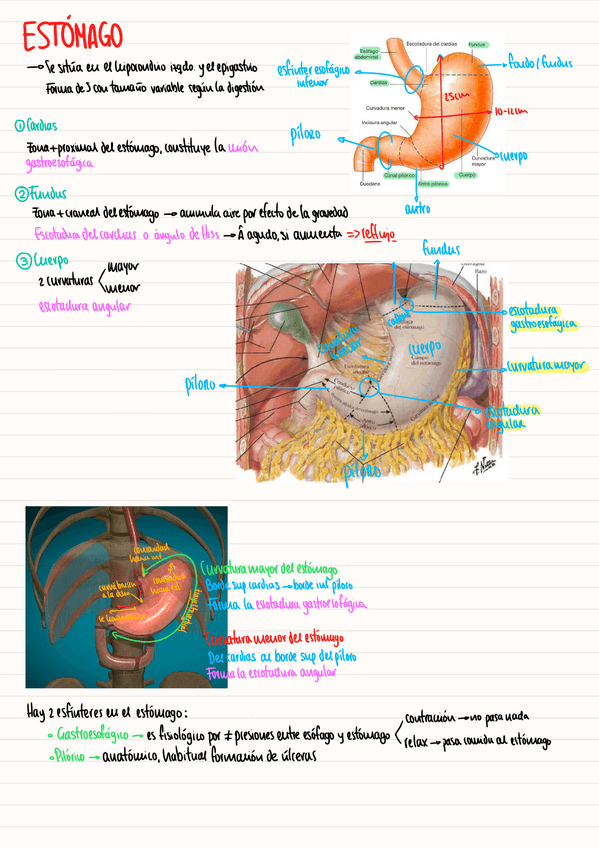 ESTÓMAGO
→ Se sitúa en el hipocondrio izqdo. y el epigastrio
Forma de J con tamaño variable según la digestión
① Cardias
Zona + proximal del estómago, constituye la unión
gastroesofágica
② Fundus
Zona + craneal del estómago → acumula aire por efecto de la gravedad
Escotadura del cardias o ángulo de Hiss → Â agudo, si aumenta => reflujo
③ Cuerpo
2 curvaturas < mayor
menor
escotadura angular
Esófago
abdominal
Escotadura del cardias
Fundus
Cardias
Curvadura menor
Incisura angular
Curvadura
mayor
Duodeno
Canal pilórico
Antro pilórico
Cuerpo
esfínter esofágico
inferior
píloro
fondo / fundus
25cm
10-12cm
cuerpo
antro
fundus
Bazo
cardias
escotadura
gastroesofágica
curvatura
menor
cuerpo
Cuerpo
del estómago
curvatura mayor
píloro
escotadura
angular
píloro
Curvatura mayor del estómago
Borde sup cardias → borde inf píloro
Forma la escotadura gastroesofágica
Curvatura menor del estómago
Del cardias al borde sup del píloro
Forma la escotadura angular
Hay 2 esfínteres en el estómago:
◦ Gastroesofágico → es fisiológico por ≠ presiones entre esófago y estómago < contracción → no pasa nada
relax → pasa comida al estómago
◦ Pilórico → anatómico, habitual formación de úlceras